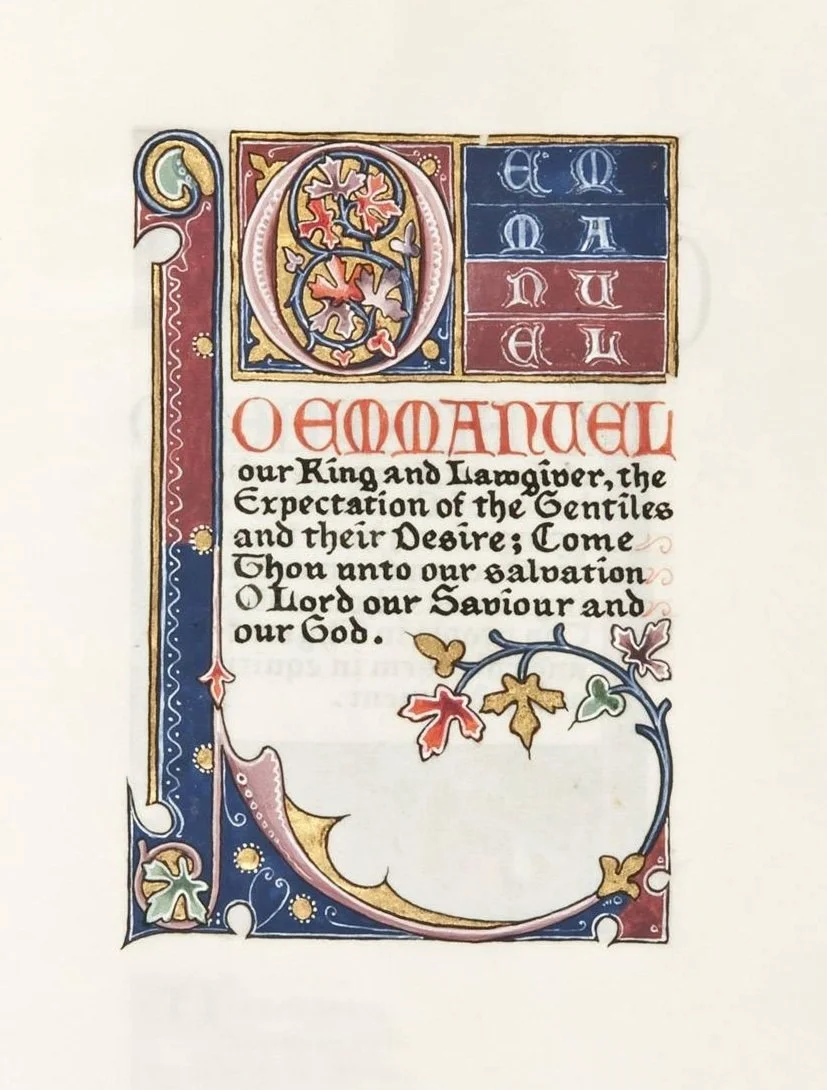 O EM
MA
NU
EL
O EMMANUEL
our King and Lawgiver, the
Expectation of the Gentiles
and their Desire; Come
Thou unto our salvation
O Lord our Saviour and
our God.